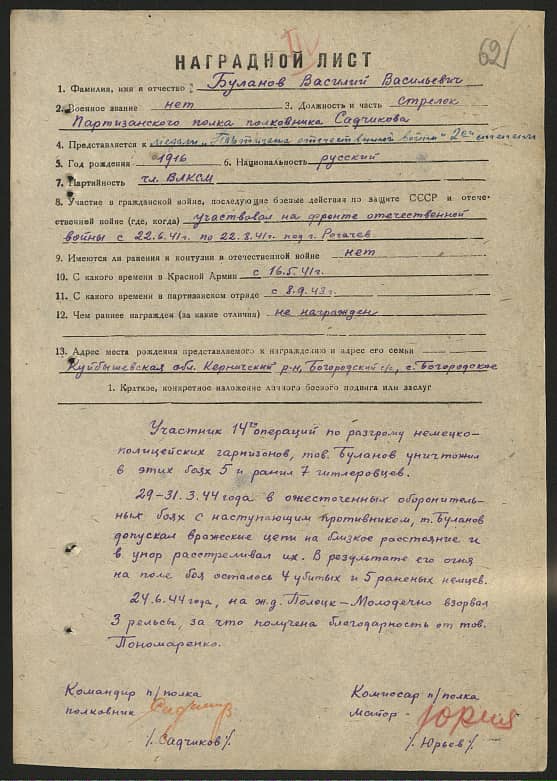 IV
62
НАГРАДНОЙ ЛИСТ
1. Фамилия, имя и отчество: Буланов Василий Васильевич
2. Военное звание нет 3. Должность и часть стрелок
Партизанского полка полковника Садчикова
4. Представляется к медали „Партизана отечественной войны" 2ой степени
5. Год рождения 1916 6. Национальность русский
7. Партийность чл. ВЛКСМ
8. Участие в гражданской войне, последующие боевые действия по защите СССР и отече-
ственной войне (где, когда) участвовал на фронте отечественной
войны с 22.6.41г. по 22.8.41г. под г. Рогачев
9. Имеются ли ранения и контузии в отечественной войне нет
10. С какого времени в Красной Армии с 16.5.41г.
11. С какого времени в партизанском отряде с 8.9.43г.
12. Чем раннее награжден (за какие отличия) не награжден
13. Адрес места рождения представляемого к награждению и адрес его семьи
Куйбышевская обл. р-н, Богородский с/с, с. Богородское
1. Краткое, конкретное изложение личного боевого подвига или заслуг
Участник 14ти операций по разгрому немецко-
полицейских гарнизонов, тов. Буланов уничтожил
в этих боях 5 и ранил 7 гитлеровцев.
29-31.3.44 года в ожесточенных оборонитель-
ных боях с наступающим противником, т. Буланов
допускал вражеские цепи на близкое расстояние и
в упор расстреливал их. В результате его огня
на поле боя осталось 4 убитых и 5 раненых немцев.
24.6.44 года, на ж.д. Полоцк-Молодечно взорвал
3 рельсы, за что получена благодарность от тов.
Пономаренко.
Командир п/полка
полковник Садчиков
/. Садчиков/.
Комиссар п/полка
Майор - Юрьев
/. Юрьев/.